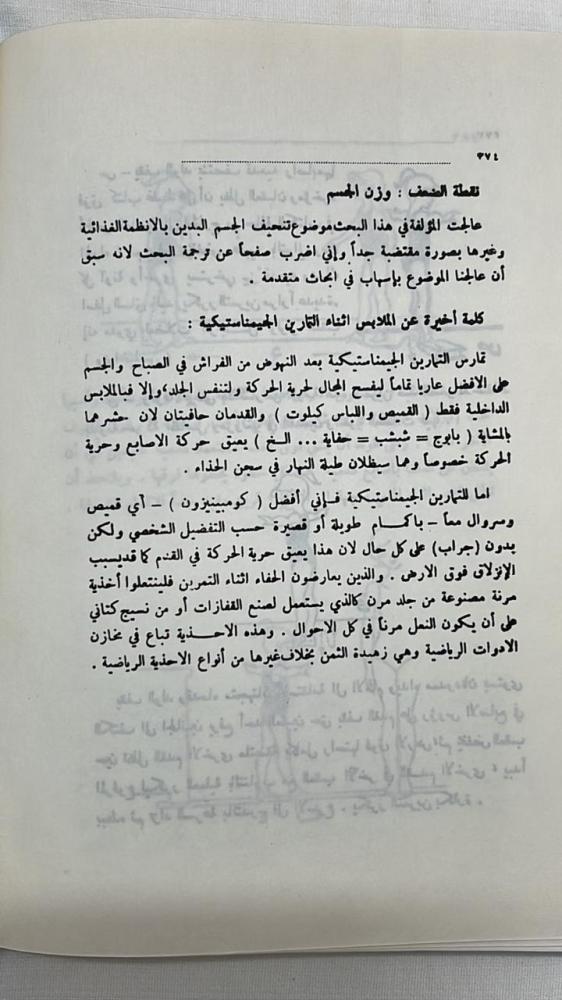 ٣٧٤
نقطة الضعف : وزن الجسم
عالجت المؤلفة في هذا البحث موضوع تنحيف الجسم البدين بالانظمة الغذائية
وغيرها بصورة مقتضبة جداً وإني اضرب صفحاً عن ترجمة البحث لانه سبق
أن عالجنا الموضوع بإسهاب في ابحاث متقدمة .
كلمة أخيرة عن الملابس اثناء التمارين الجيمناستيكية :
تمارس التمارين الجيمناستيكية بعد النهوض من الفراش في الصباح والجسم
على الافضل عاريا تماماً ليفسح المجال لحرية الحركة ولتنفس الجلد، وإلا فبالملابس
الداخلية فقط ( القميص واللباس كيلوت ) والقدمان حافيتان لان حشرهما
بالمشاية ( بابوج = شبشب = حفاية ... الخ ) يعيق حركة الاصابع وحرية
الحركة خصوصاً وهما سيظلان طيلة النهار في سجن الحذاء .
اما للتمارين الجيمناستيكية فإني أفضل ( كومبينيزون ) – أي قميص
وسروال معاً – باكمام طويلة أو قصيرة حسب التفضيل الشخصي ولكن
بدون (جراب) على كل حال لان هذا يعيق حرية الحركة في القدم كما قد يسبب
الإنزلاق فوق الارض . والذين يعارضون الحفاء اثناء التمرين فلينتعلوا أحذية
مرنة مصنوعة من جلد مرن كالذي يستعمل لصنع القفازات أو من نسيج كتاني
على أن يكون النعل مرناً في كل الاحوال . وهذه الاحذية تباع في مخازن
الادوات الرياضية وهي زهيدة الثمن بخلاف غيرها من أنواع الاحذية الرياضية .